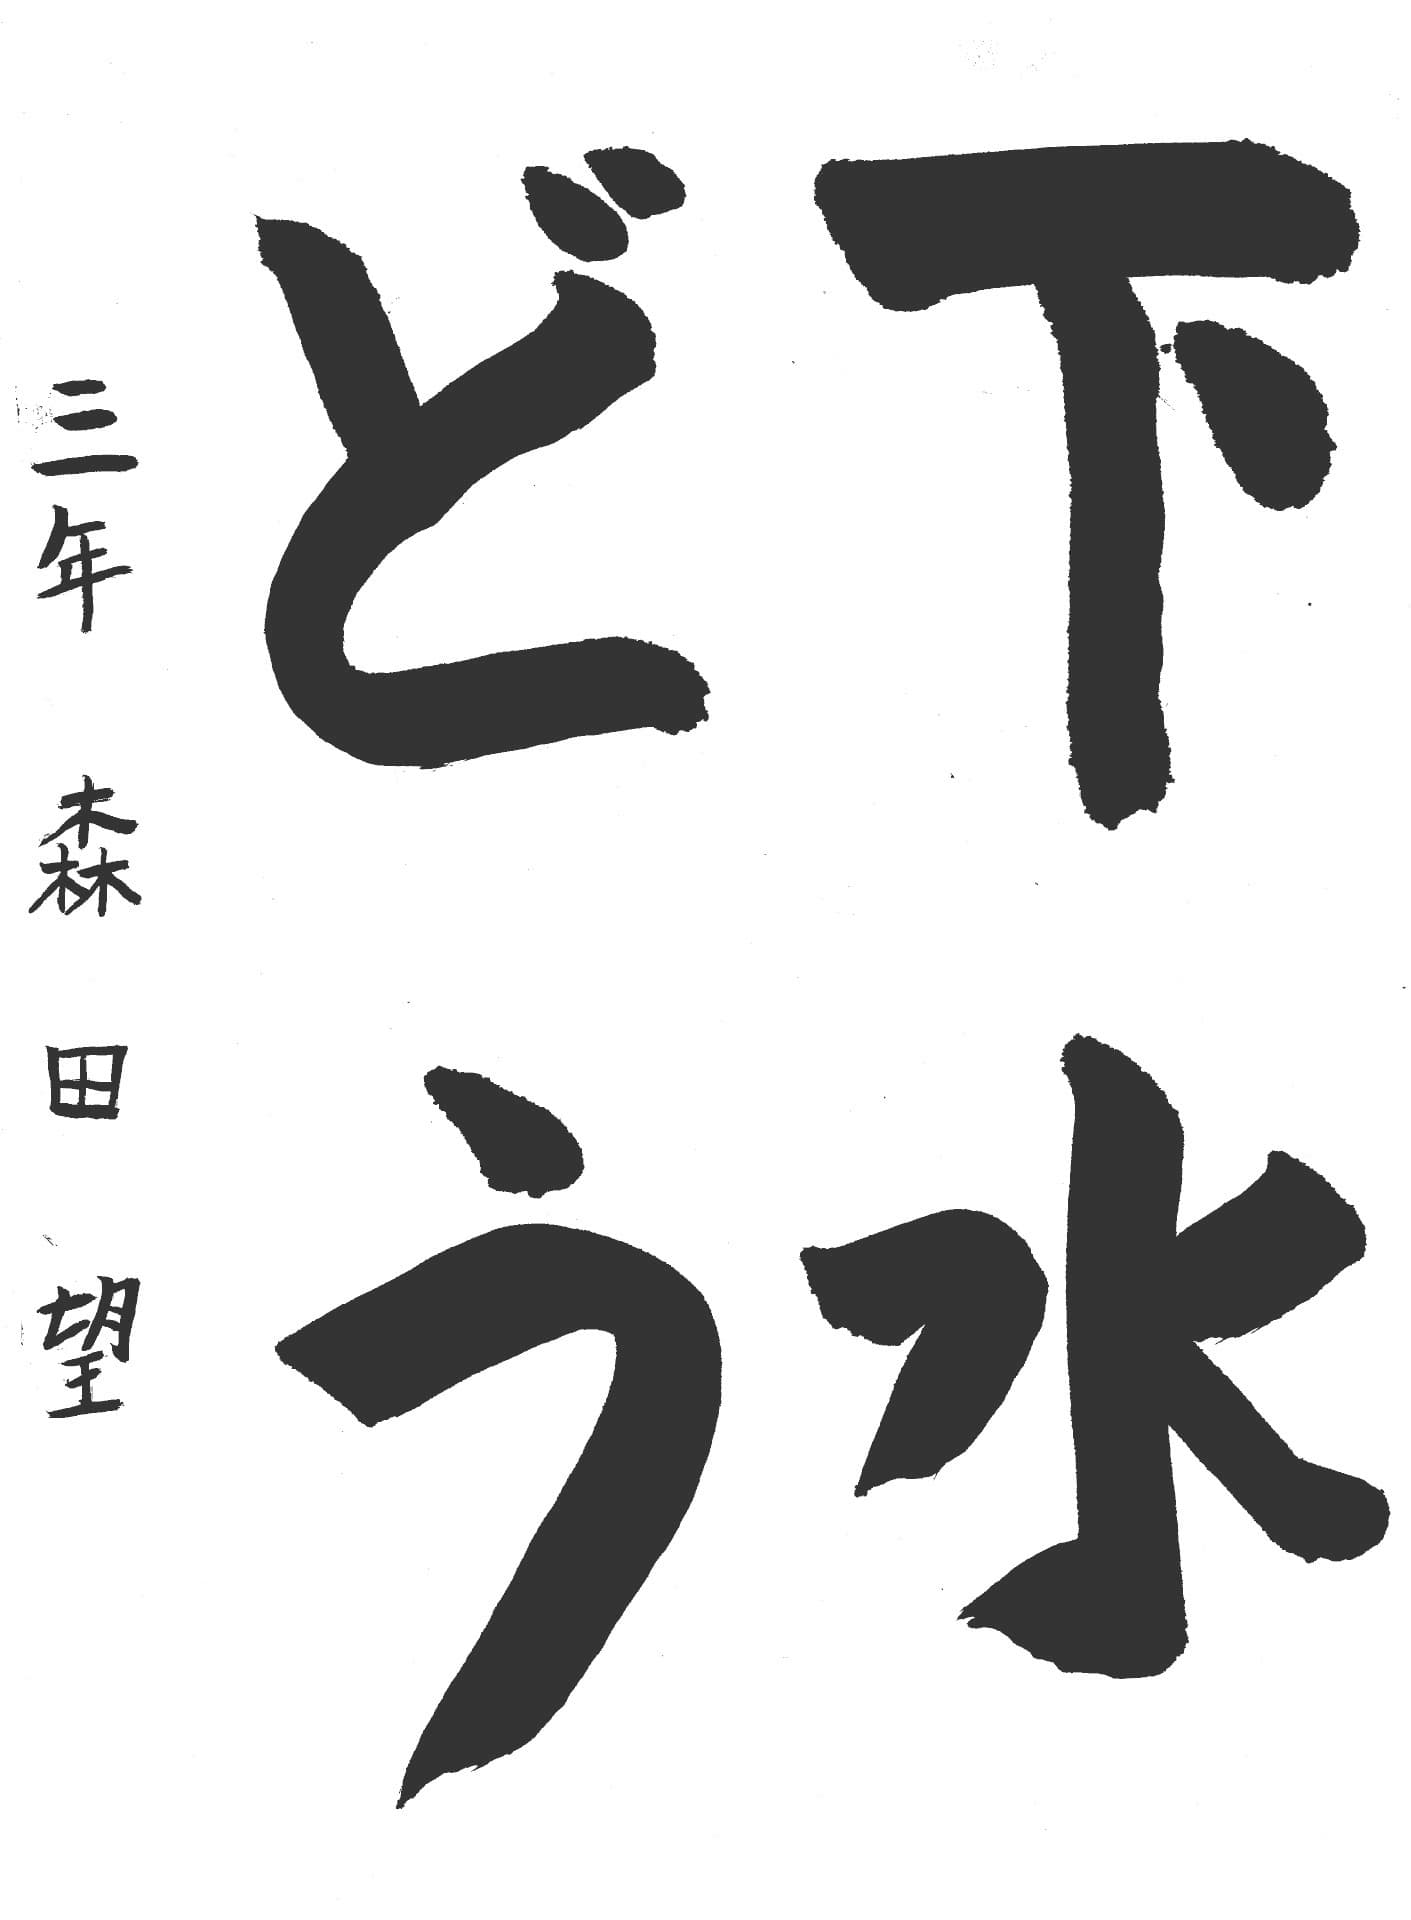 下水
どう
三年 森田望